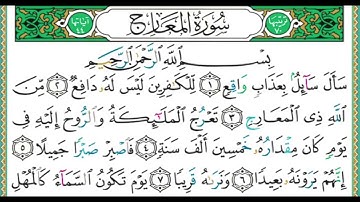 ترتيبها ٧٠ سُورَةُ الْمَعَارِجِ آياتها ٤٤
بِسْمِ اللَّهِ الرَّحْمَٰنِ الرَّحِيمِ
سَأَلَ سَآئِلٌۢ بِعَذَابٍ وَاقِعٍ ﴿١﴾ لِّلْكَٰفِرِينَ لَيْسَ لَهُۥ دَافِعٌ ﴿٢﴾ مِّنَ
ٱللَّهِ ذِى ٱلْمَعَارِجِ ﴿٣﴾ تَعْرُجُ ٱلْمَلَٰٓئِكَةُ وَٱلرُّوحُ إِلَيْهِ فِى
يَوْمٍ كَانَ مِقْدَارُهُۥ خَمْسِينَ أَلْفَ سَنَةٍ ﴿٤﴾ فَٱصْبِرْ صَبْرًا جَمِيلًا ﴿٥﴾
إِنَّهُمْ يَرَوْنَهُۥ بَعِيدًا ﴿٦﴾ وَنَرَىٰهُ قَرِيبًا ﴿٧﴾ يَوْمَ تَكُونُ ٱلسَّمَآءُ كَٱلْمُهْلِ